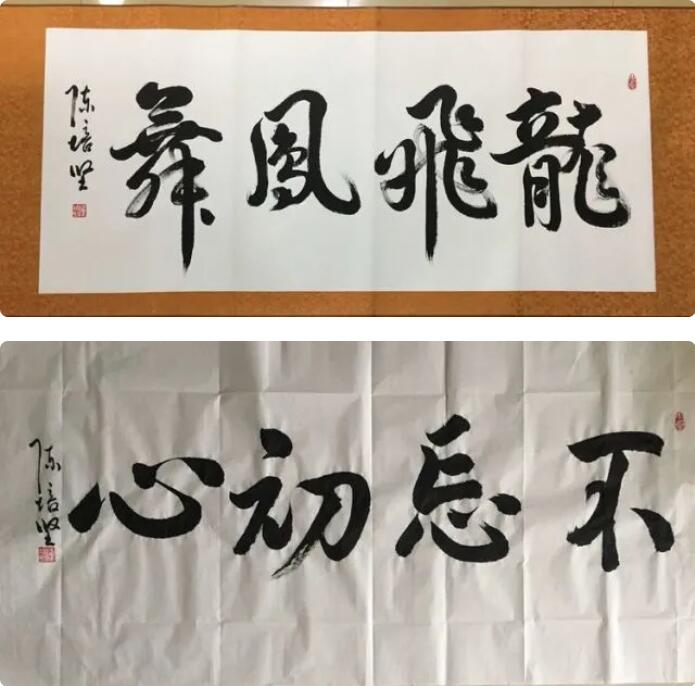 龍飛鳳舞
陈培坚
不忘初心
陈培坚